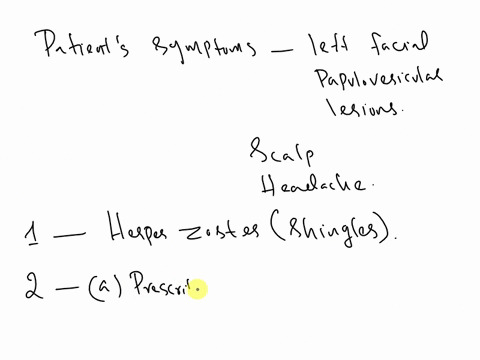 Patient's symptoms — left facial
Papulovesicular
lesions.
Scalp
Headache.
1 — Herpes zoster (Shingles).
2 — (a) Prescri